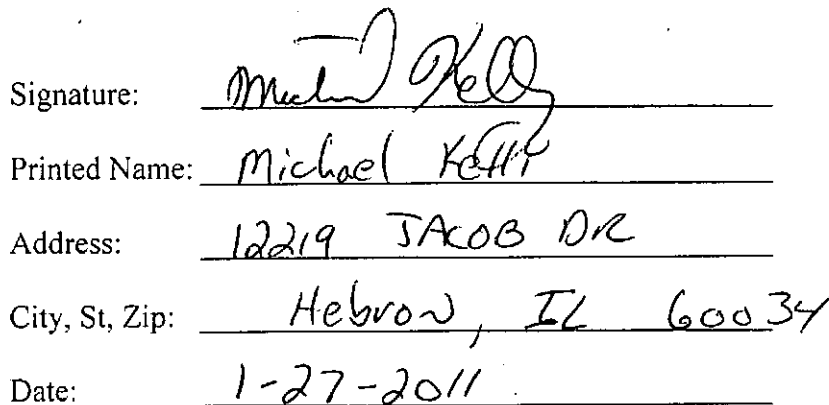 Signature: Michael Kelly
Printed Name: Michael Kelly
Address: 12219 JACOB DR
City, St, Zip: Hebron, IL 60034
Date: 1-27-2011